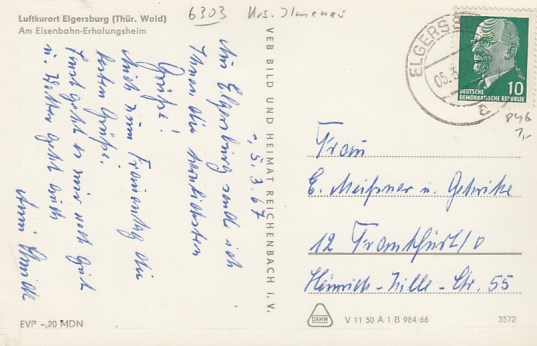 Luftkurort Elgersburg (Thür. Wald)
Am Eisenbahn-Erholungsheim
6303 Krs. Ilmenau
Aus Elgersburg send ich
Ihnen die herzlichsten
Grüße!
Auch zum Frauentag die
besten Grüße.
Sonst geht es mir noch gut
u. Wetter geht auch
, 5.3.67
VEB BILD UND HEIMAT REICHENBACH I. V.
ELGERSB
05.3.
c
10
DEUTSCHE
DEMOKRATISCHE REPUBLIK
846
1,-
Frau
E. Meißner u. Gehrike
12 Frankfurt/O
Heinrich-Zille-Str. 55
EVP -,20 MDN
V 11 50 A 1 B 984/66
3572